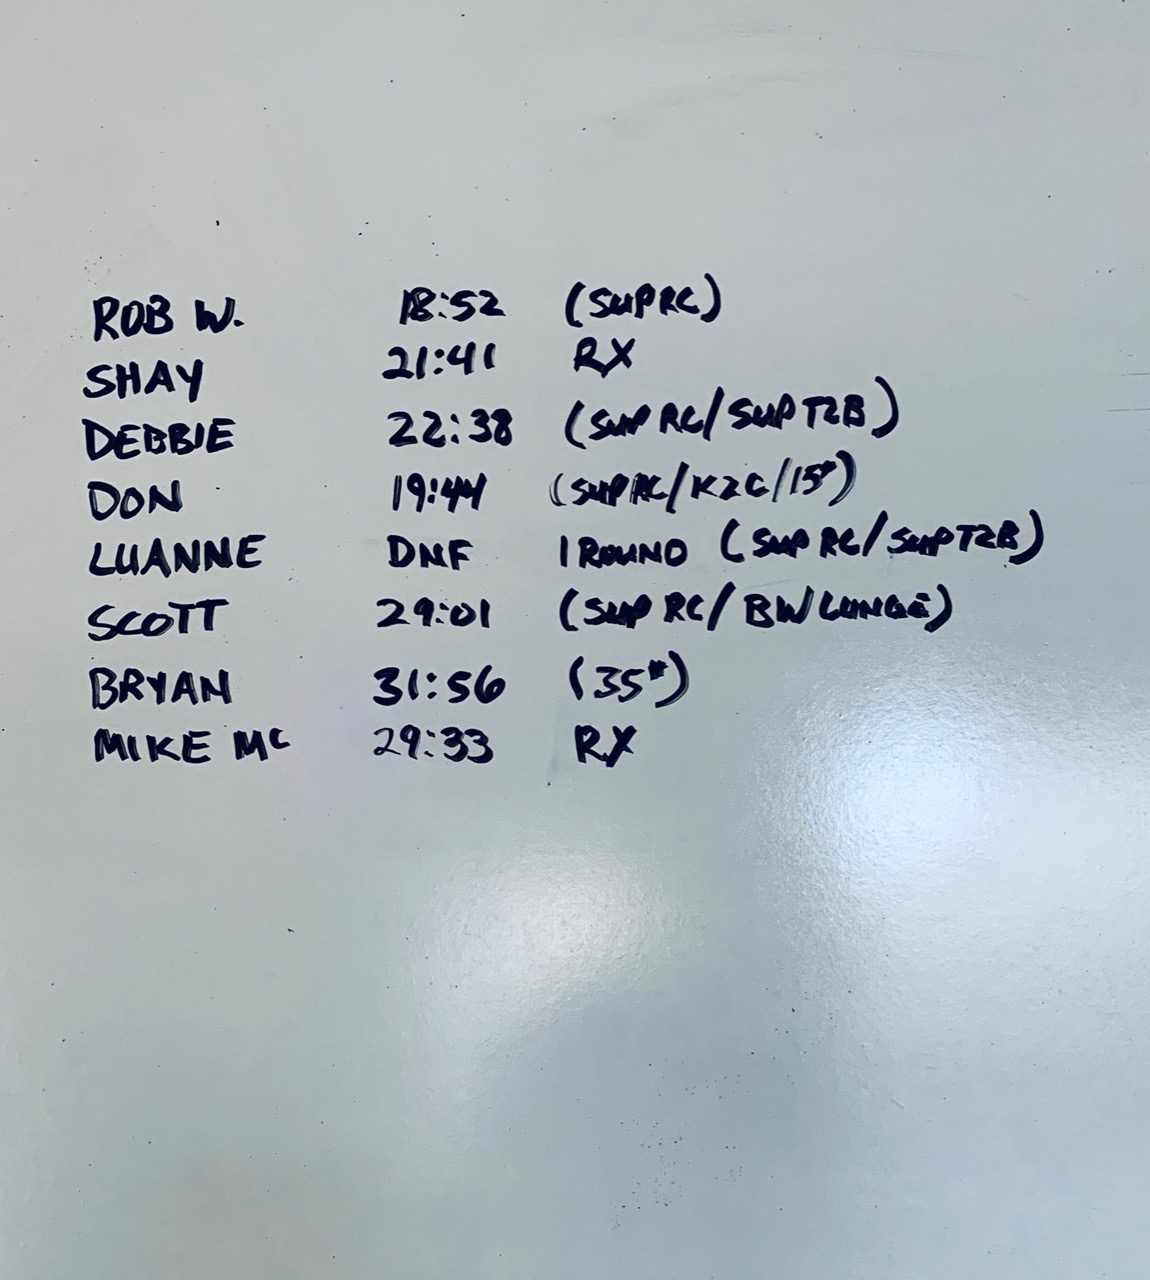 ROB W. 18:52 (SUP RC)
SHAY 21:41 RX
DEBBIE 22:38 (SUP RC/SUP T2B)
DON 19:44 (SUP RC/K2C/15#)
LUANNE DNF 1 ROUND (SUP RC/SUP T2B)
SCOTT 29:01 (SUP RC/BW LUNGE)
BRYAN 31:56 (35#)
MIKE MC 29:33 RX